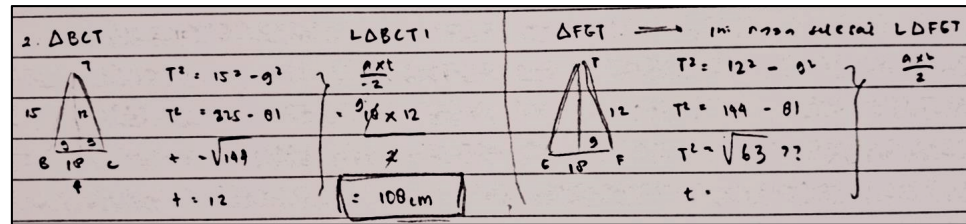 2. ΔBCT LΔBCT1
T
15 12
9 9
B 18 C
T² = 15² - 9²
T² = 225 - 81
t = √144
t = 12
axt
2
= 9 18 x 12
2
= 108 cm
ΔFGT → ini LΔFGT
T
12
9
G 18 F
T² = 12² - 9²
T² = 144 - 81
T² = √63 ??
t =
axt
2